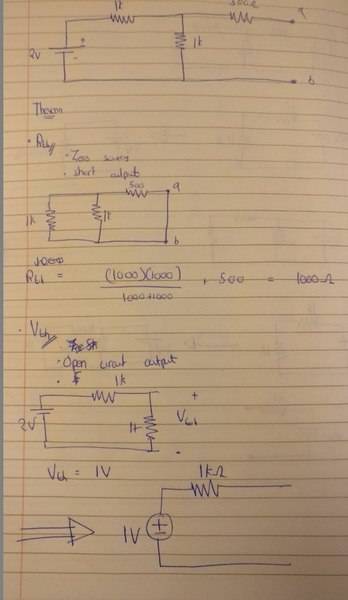 1k
500Ω
a
2V
+
-
1k
b
Theven
• Rth
• Zero sources
• short outputs
500
a
1k
1k
b
Rth = (1000)(1000) / 1000+1000 + 500 = 1000Ω
• Vth
• Open circuit output
•
1k
+
2V
1k
Vth
-
Vth = 1V
1kΩ
1V
+
-